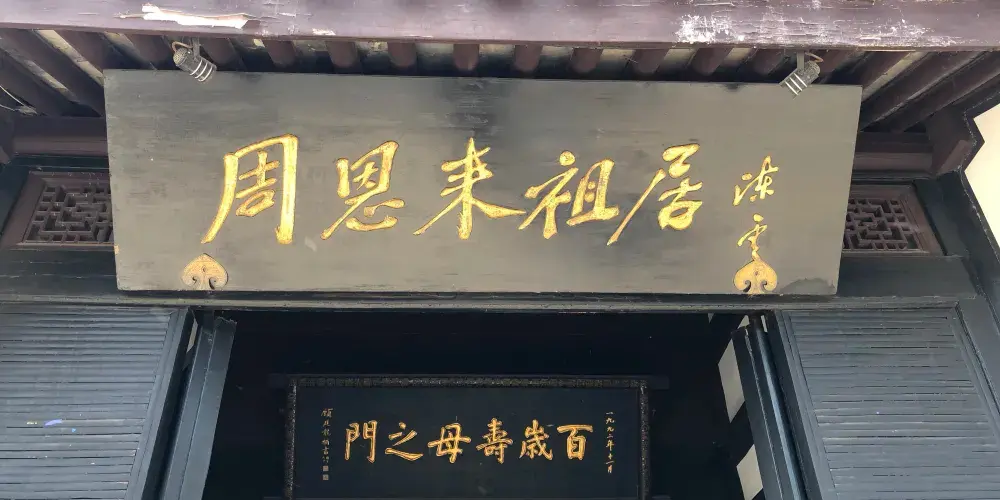 周恩来祖居
陈云
一九九二年十一月
百歲壽母之門